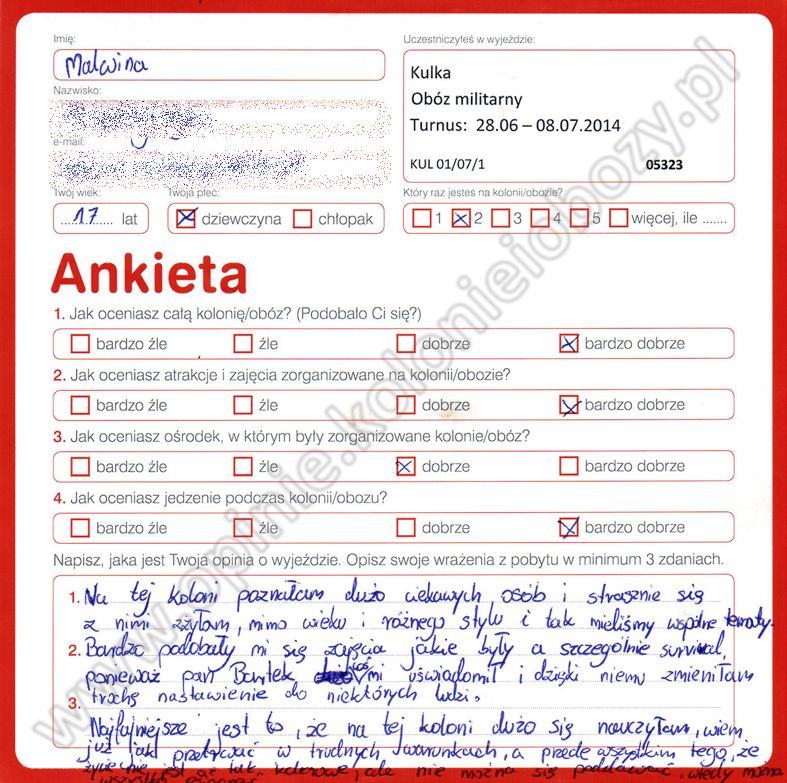 Imię:
Malwina
Nazwisko:
e-mail:
Twój wiek:
17 lat
Twoja płeć:
dziewczyna chłopak
Uczestniczyłeś w wyjeździe:
Kulka
Obóz militarny
Turnus: 28.06 – 08.07.2014
KUL 01/07/1 05323
Który raz jesteś na kolonii/obozie?
1 2 3 4 5 więcej, ile .......
Ankieta
1. Jak oceniasz całą kolonię/obóz? (Podobało Ci się?)
bardzo źle źle dobrze bardzo dobrze
2. Jak oceniasz atrakcje i zajęcia zorganizowane na kolonii/obozie?
bardzo źle źle dobrze bardzo dobrze
3. Jak oceniasz ośrodek, w którym były zorganizowane kolonie/obóz?
bardzo źle źle dobrze bardzo dobrze
4. Jak oceniasz jedzenie podczas kolonii/obozu?
bardzo źle źle dobrze bardzo dobrze
Napisz, jaka jest Twoja opinia o wyjeździe. Opisz swoje wrażenia z pobytu w minimum 3 zdaniach.
1. Na tej koloni poznałam dużo ciekawych osób i strasznie się
z nimi zżyłam, mimo wieku i różnego stylu i tak mieliśmy wspólne tematy.
2. Bardzo podobały mi się zajęcia jakie były a szczególnie survival,
ponieważ pan Bartek coś mi uświadomił i dzięki niemu zmieniłam
trochę nastawienie do niektórych ludzi.
3.
Najfajniejsze jest to, że na tej koloni dużo się nauczyłam, wiem
już jak przetrwać w trudnych warunkach, a przede wszystkim tego, że
życie nie jest aż tak kolorowe, ale nie można się poddawać wtedy można
wszystko osiągnąć
www.opinie.kolonieiobozy.pl